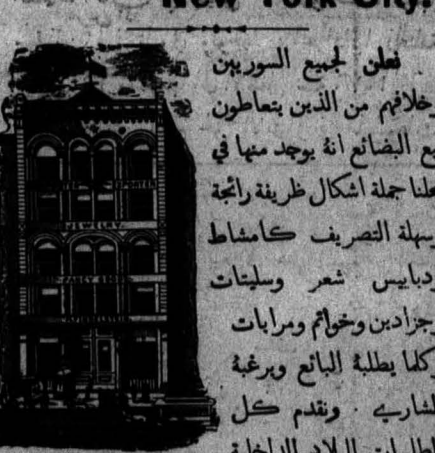 New York City.
نعلن لجميع السوريين
وخلافهم من الذين يتعاطون
بيع البضائع انهُ يوجد منها في
محلنا جملة اشكال ظريفة رائجة
وسهلة التصريف كامشاط
ودبابيس شعر وسليتات
وجزادين وخواتم ومرايات
وكلما يطلبهُ البائع ويرغبهُ
الشاري . ونقدم كل
البلاد الداخلية
JEWELRY
FANCY GOODS